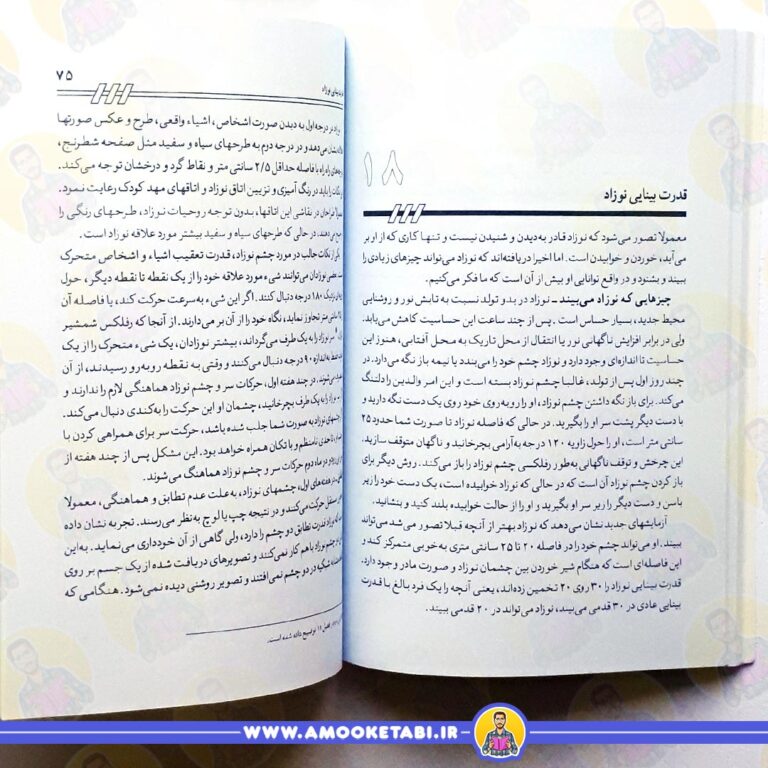 ۱۸
قدرت بینایی نوزاد
معمولا تصور می‌شود که نوزاد قادر به‌دیدن و شنیدن نیست و تنها کاری که از او بر
می‌آید، خوردن و خوابیدن است. اما اخیرا دریافته‌اند که نوزاد می‌تواند چیزهای زیادی را
ببیند و بشنود و در واقع توانایی او بیش از آن است که ما فکر می‌کنیم.
چیزهایی که نوزاد می‌بیند ـ نوزاد در بدو تولد نسبت به تابش نور و روشنایی
محیط جدید، بسیار حساس است. پس از چند ساعت این حساسیت کاهش می‌یابد.
ولی در برابر افزایش ناگهانی نور یا انتقال از محل تاریک به محل آفتابی، هنوز این
حساسیت تا اندازه‌ای وجود دارد و نوزاد چشم خود را می‌بندد یا نیمه باز نگه می‌دارد. در
چند روز اول پس از تولد، غالبا چشم نوزاد بسته است و این امر والدین را دلتنگ
می‌کند. برای باز نگه داشتن چشم نوزاد، او را روبه‌روی خود روی یک دست نگه دارید و
با دست دیگر پشت سر او را بگیرید. در حالی که فاصله نوزاد تا صورت شما حدود ۲۵
سانتی متر است، او را حول زاویه ۱۲۰ درجه به‌آرامی بچرخانید و ناگهان متوقف سازید.
این چرخش و توقف ناگهانی به‌طور رفلکسی چشم نوزاد را باز می‌کند. روش دیگر برای
باز کردن چشم نوزاد آن است که در حالی که نوزاد خوابیده است، یک دست خود را زیر
باسن و دست دیگر را زیر سر او بگیرید و او را از حالت خوابیده بلند کنید و بنشانید.
آزمایشهای جدید نشان می‌دهد که نوزاد بهتر از آنچه قبلا تصور می‌شد می‌تواند
ببیند. او می‌تواند چشم خود را در فاصله ۲۰ تا ۲۵ سانتی متری به‌خوبی متمرکز کند و
این فاصله‌ای است که هنگام شیر خوردن بین چشمان نوزاد و صورت مادر وجود دارد.
قدرت بینایی نوزاد را ۳۰ روی ۲۰ تخمین زده‌اند، یعنی آنچه را یک فرد بالغ با قدرت
بینایی عادی در ۳۰ قدمی می‌بیند، نوزاد می‌تواند در ۲۰ قدمی ببیند.
بینایی نوزاد ۷۵
در درجه اول به دیدن صورت اشخاص، اشیاء واقعی، طرح و عکس صورتها
نشان می‌دهد و در درجه دوم به طرحهای سیاه و سفید مثل صفحه شطرنج،
راه راه با فاصله حداقل ۲/۵ سانتی متر و نقاط گرد و درخشان توجه می‌کند.
نکات را باید در رنگ آمیزی و تزیین اتاق نوزاد و اتاقهای مهد کودک رعایت نمود.
طراحان در نقاشی این اتاقها، بدون توجه روحیات نوزاد، طرحهای رنگی را
می‌دهند. در حالی که طرحهای سیاه و سفید بیشتر مورد علاقه نوزاد است.
یکی از نکات جالب در مورد چشم نوزاد، قدرت تعقیب اشیاء و اشخاص متحرک
است. بعضی نوزادان می‌توانند شیء مورد علاقه خود را از یک نقطه تا نقطه دیگر، حول
۱۸۰ درجه دنبال کنند. اگر این شیء به‌سرعت حرکت کند، یا فاصله آن
سانتی متر تجاوز نماید، نگاه خود را از آن بر می‌دارند. از آنجا که رفلکس شمشیر
سر نوزاد را به یک طرف می‌گرداند، بیشتر نوزادان، یک شیء متحرک را از یک
به اندازه ۹۰ درجه دنبال می‌کنند و وقتی به نقطه روبه‌رو رسیدند، از آن
می‌شوند. در چند هفته اول، حرکات سر و چشم نوزاد هماهنگی لازم را ندارند و
سر نوزاد را به یک طرف بچرخانید، چشمان او این حرکت را به‌کندی دنبال می‌کند.
چشمهای نوزاد به صورت شما جلب شده باشد، حرکت سر برای همراهی کردن با
تا حدی نامنظم و با تکان همراه خواهد بود. این مشکل پس از چند هفته از
در ماه دوم حرکات سر و چشم نوزاد هماهنگ می‌شوند.
هفته‌های اول، چشمهای نوزاد، به‌علت عدم تطابق و هماهنگی، معمولا
مستقل حرکت می‌کنند و در نتیجه چپ یا لوچ به‌نظر می‌رسند. تجربه نشان داده
نوزاد قدرت تطابق دو چشم را دارد، ولی گاهی از آن خودداری می‌نماید. به‌این
چشم نوزاد با هم کار نمی‌کنند و تصویرهای دریافت شده از یک جسم بر روی
شبکیه در دو چشم نمی‌افتند و تصویر روشنی دیده نمی‌شود. هنگامی که
فصل ۱۱ توضیح داده شده است.
WWW.AMOOKETABI.IR